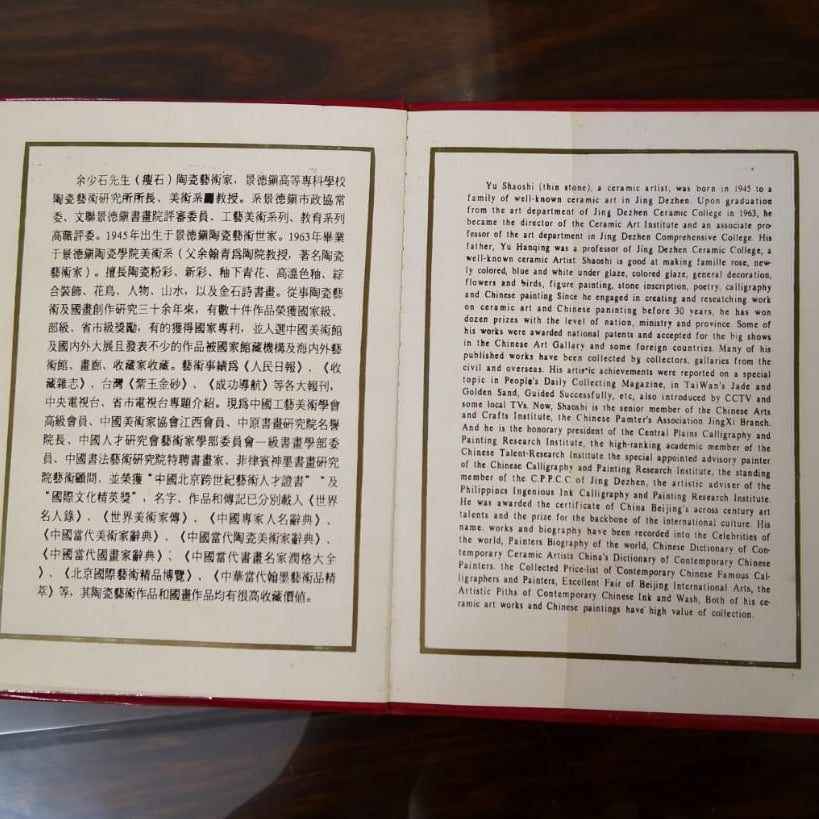 余少石先生（瘦石）陶瓷藝術家，景德鎮高等專科學校
陶瓷藝術研究所所長、美術系 教授。系景德鎮市政協常
委、文聯景德鎮書畫院評審委員、工藝美術系列、教育系列
高職評委。1945年出生于景德鎮陶瓷藝術世家。1963年畢業
于景德鎮陶瓷學院美術系（父余翰青爲陶院教授，著名陶瓷
藝術家）。擅長陶瓷粉彩、新彩、釉下青花、高溫色釉、綜
合裝飾、花鳥、人物、山水，以及金石詩書畫。從事陶瓷藝
術及國畫創作研究三十余年來，有數十件作品榮獲國家級、
部級、省市級獎勵，有的獲得國家專利，並入選中國美術館
及國内外大展且發表不少的作品被國家館藏機構及海内外藝
術館、畫廊、收藏家收藏。藝術事績爲《人民日報》、《收
藏雜志》、台灣《紫玉金砂》、《成功導航》等各大報刊，
中央電視台、省市電視台專題介紹。現爲中國工藝美術學會
高級會員、中國美術家協會江西會員、中原書畫研究院名譽
院長、中國人才研究會藝術家學部委員會一級書畫學部委
員、中國書法藝術研究院特聘書畫家、菲律賓神墨書畫研究
院藝術顧問，並榮獲“中國北京跨世紀藝術人才證書”“及
“國際文化精英獎”，名字、作品和傳記已分別載入《世界
名人錄》、《世界美術家傳》、《中國專家人名辭典》、
《中國當代美術家辭典》、《中國當代陶瓷美術家辭典》、
《中國當代國畫家辭典》；《中國當代書畫名家潤格大全
》、《北京國際藝術精品博覽》、《中華當代翰墨藝術品精
萃》等，其陶瓷藝術作品和國畫作品均有很高收藏價值。
Yu Shaoshi (thin stone), a ceramic artist, was born in 1945 to a
family of well-known ceramic art in Jing Dezhen. Upon graduation
from the art department of Jing Dezhen Ceramic College in 1963, he
became the director of the Ceramic Art Institute and an associate pro-
fessor of the art department in Jing Dezhen Comprehensive College. His
father, Yu Hanqing was a professor of Jing Dezhen Ceramic College, a
well-known ceramic Artist. Shaoshi is good at making famille rose, new-
ly colored, blue and white under glaze, colored glaze, general decoration,
flowers and birds, figure painting, stone inscription, poetry, calligraphy
and Chinese painting Since he engaged in creating and rescatching work
on ceramic art and Chinese paninting before 30 years, he has won
dozen prizes with the level of nation, ministry and province. Some of
his works were awarded national patents and accepted for the big shows
in the Chinese Art Gallary and some foreign countries. Many of his
published works have been collected by collectors, gallaries from the
civil and overseas. His artistic achievements were reported on a special
topic in People's Daily Collecting Magazine, in TaiWan's Jade and
Golden Sand, Guided Successfully, etc, also introduced by CCTV and
some local TVs. Now, Shaoshi is the senior member of the Chinese Arts
and Crafts Institute, the Chinese Pamter's Association JingXi Branch.
And he is the honorary president of the Central Plains Calligraphy and
Painting Research Institute, the high-ranking academic member of the
Chinese Talent-Research Institute the special appointed advisory painter
of the Chinese Calligraphy and Painting Research Institute, the standing
member of the C.P.P.C.C of Jing Dezhen, the artistic adviser of the
Philippincs Ingenious Ink Calligraphy and Painting Research Institute.
He was awarded the certificate of China Beijing's across century art
talents and the prize for the backbone of the international culture. His
name, works and biography have been recorded into the Celebrities of
the world, Painters Biography of the world, Chinese Dictionary of Con-
temporary Ceramic Artists China's Dictionary of Contemporary Chinese
Painters, the Collected Price-list of Contemporary Chinese Famous Cal-
ligraphers and Painters, Excellent Fair of Beijing International Arts, the
Artistic Piths of Contemporary Chinese Ink and Wash, Both of his ce-
ramic art works and Chinese paintings have high value of collection.